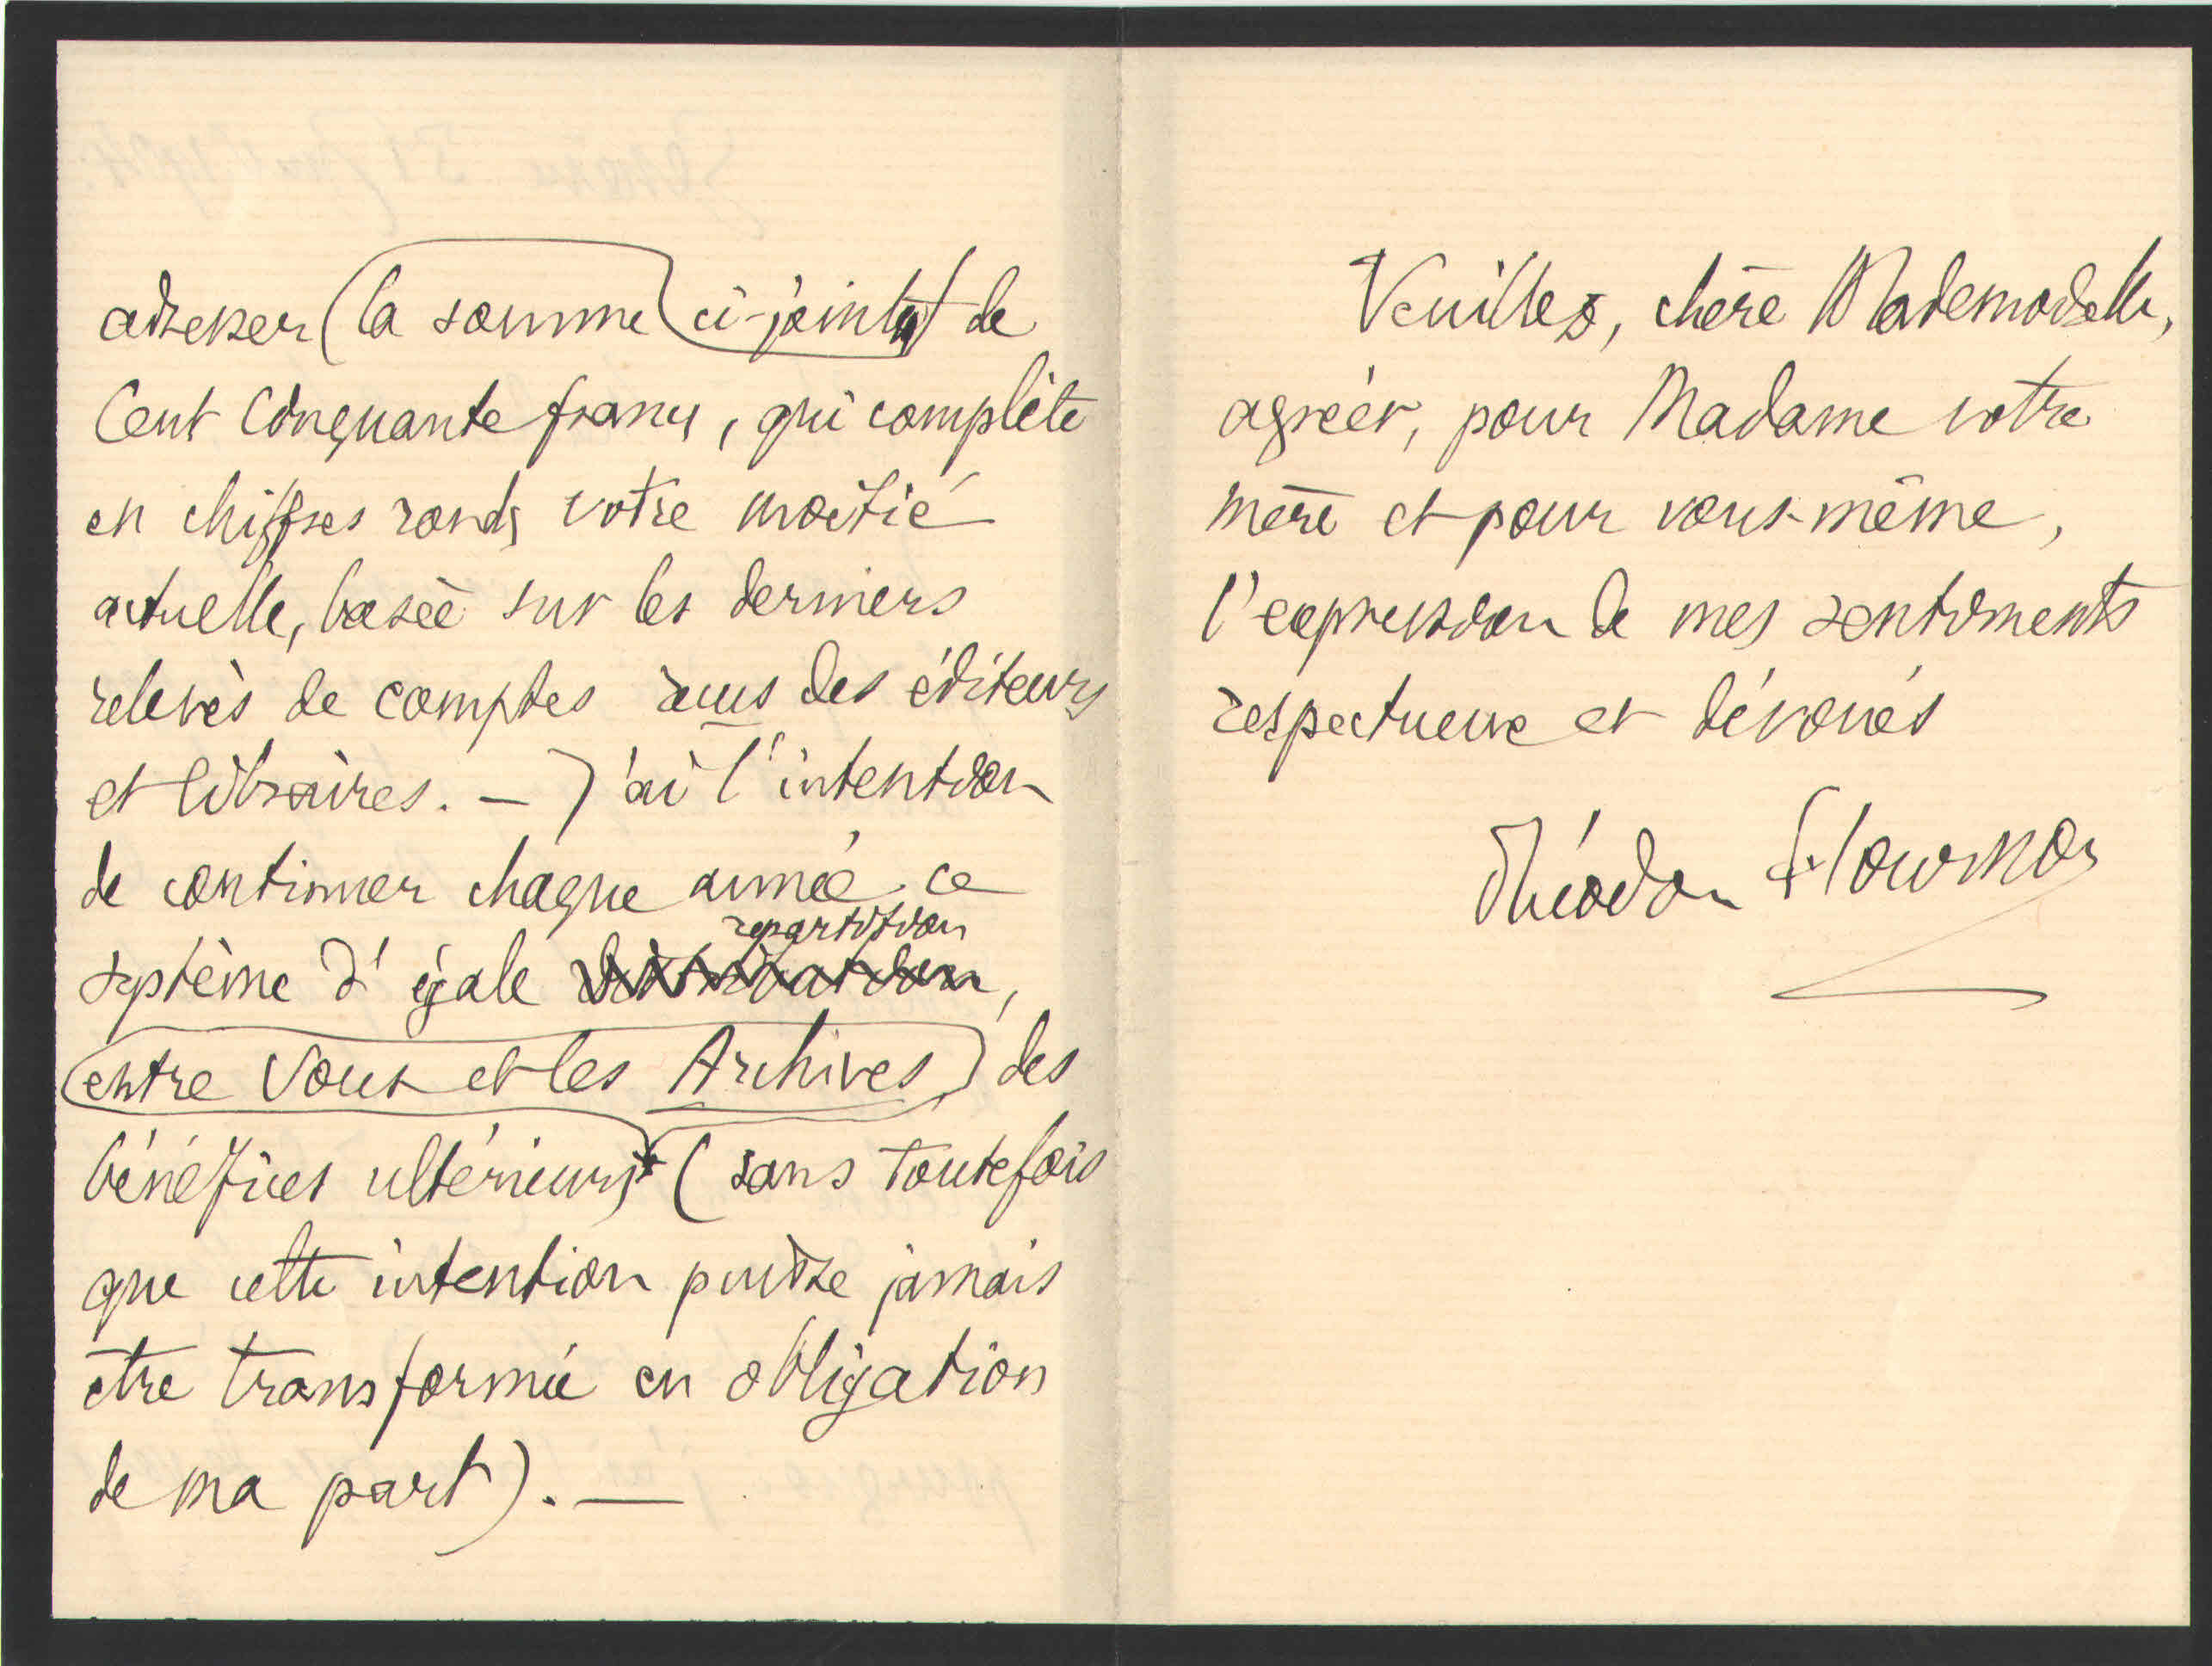 adresser (la somme ci-jointe) de
Cent Cinquante francs, qui complète
en chiffres ronds votre moitié
actuelle, basée sur les derniers
relevés de comptes reçus des éditeurs
et libraires. — J'ai l'intention
de continuer chaque année ce
repartition
système d'égale
,
entre Vous et les Archives des
bénéfices ultérieurs (sans toutefois
que cette intention puisse jamais
être transformée en obligation
de ma part). —
Veuillez, chère Mademoiselle,
agréer, pour Madame votre
mère et pour vous-même,
l'expression de mes sentiments
respectueux et dévoués
Théodore Flournoy